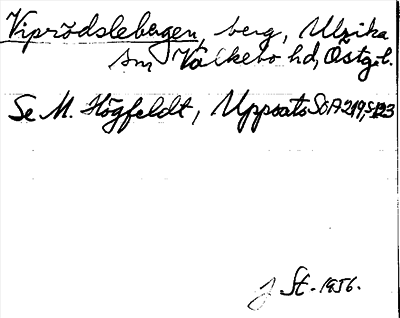 Viprödslebergen, berg, Ulrika
sn Valkebo hd, Östgöt.
Se M. Högfeldt, Uppsats SOA 219, s. 123
J St. 1956.